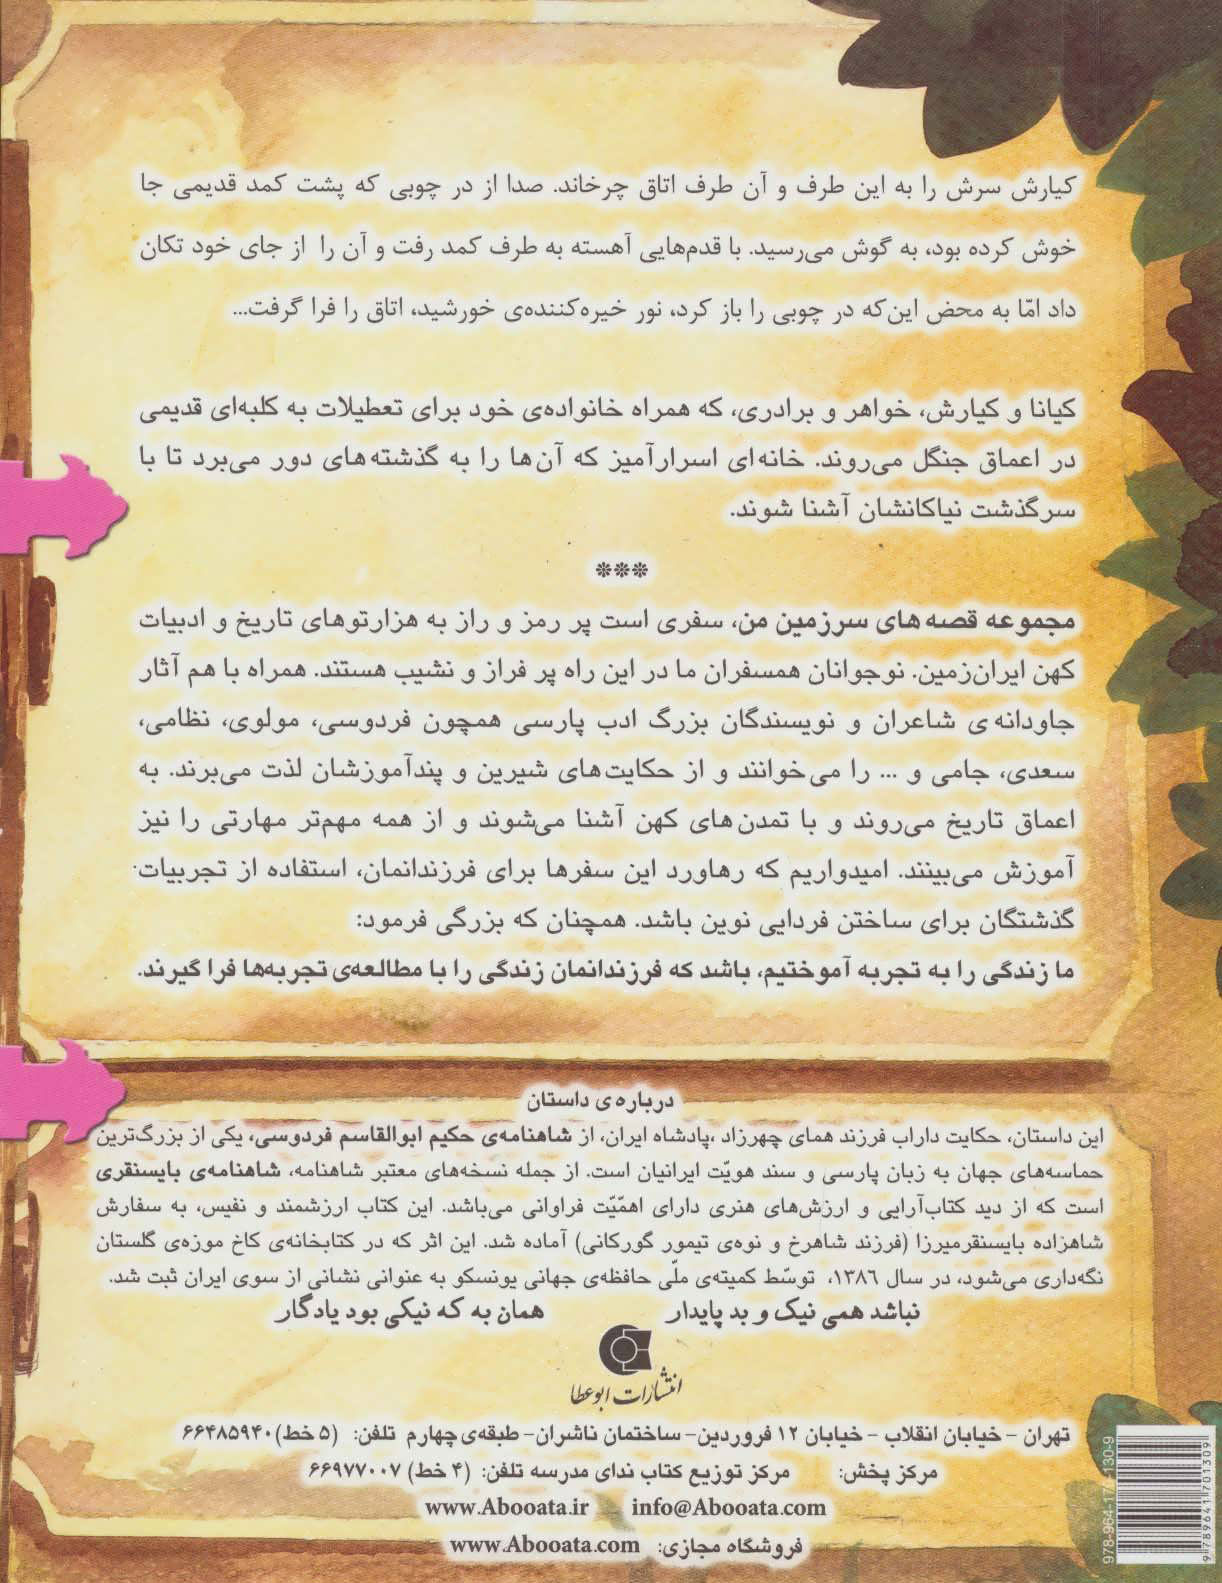 کیارش سرش را به این طرف و آن طرف اتاق چرخاند. صدا از در چوبی که پشت کمد قدیمی جا
خوش کرده بود، به گوش می‌رسید. با قدم‌هایی آهسته به طرف کمد رفت و آن را از جای خود تکان
داد امّا به محض این‌که در چوبی را باز کرد، نور خیره‌کننده‌ی خورشید، اتاق را فرا گرفت...
کیانا و کیارش، خواهر و برادری، که همراه خانواده‌ی خود برای تعطیلات به کلبه‌ای قدیمی
در اعماق جنگل می‌روند. خانه‌ای اسرارآمیز که آن‌ها را به گذشته‌های دور می‌برد تا با
سرگذشت نیاکانشان آشنا شوند.
***
مجموعه قصه‌های سرزمین من، سفری است پر رمز و راز به هزارتوهای تاریخ و ادبیات
کهن ایران‌زمین. نوجوانان همسفران ما در این راه پر فراز و نشیب هستند. همراه با هم آثار
جاودانه‌ی شاعران و نویسندگان بزرگ ادب پارسی همچون فردوسی، مولوی، نظامی،
سعدی، جامی و ... را می‌خوانند و از حکایت‌های شیرین و پندآموزشان لذت می‌برند. به
اعماق تاریخ می‌روند و با تمدن‌های کهن آشنا می‌شوند و از همه مهم‌تر مهارتی را نیز
آموزش می‌بینند. امیدواریم که رهاورد این سفرها برای فرزندانمان، استفاده از تجربیات
گذشتگان برای ساختن فردایی نوین باشد. همچنان که بزرگی فرمود:
ما زندگی را به تجربه آموختیم، باشد که فرزندانمان زندگی را با مطالعه‌ی تجربه‌ها فرا گیرند.
درباره‌ی داستان
این داستان، حکایت داراب فرزند همای چهرزاد ،پادشاه ایران، از شاهنامه‌ی حکیم ابوالقاسم فردوسی، یکی از بزرگ‌ترین
حماسه‌های جهان به زبان پارسی و سند هویّت ایرانیان است. از جمله نسخه‌های معتبر شاهنامه، شاهنامه‌ی بایسنقری
است که از دید کتاب‌آرایی و ارزش‌های هنری دارای اهمّیّت فراوانی می‌باشد. این کتاب ارزشمند و نفیس، به سفارش
شاهزاده بایسنقرمیرزا (فرزند شاهرخ و نوه‌ی تیمور گورکانی) آماده شد. این اثر که در کتابخانه‌ی کاخ موزه‌ی گلستان
نگه‌داری می‌شود، در سال ۱۳۸۶، توسّط کمیته‌ی ملّی حافظه‌ی جهانی یونسکو به عنوانی نشانی از سوی ایران ثبت شد.
نباشد همی نیک و بد پایدار همان به که نیکی بود یادگار
انتشارات ابوعطا
تهران - خیابان انقلاب - خیابان ۱۲ فروردین- ساختمان ناشران- طبقه‌ی چهارم تلفن: (۵ خط) ۶۶۴۸۵۹۴۰
مرکز پخش: مرکز توزیع کتاب ندای مدرسه تلفن: (۴ خط) ۶۶۹۷۷۰۰۷
www.Abooata.ir info@Abooata.com
فروشگاه مجازی: www.Abooata.com
978-964-17-130-9
9789641701309